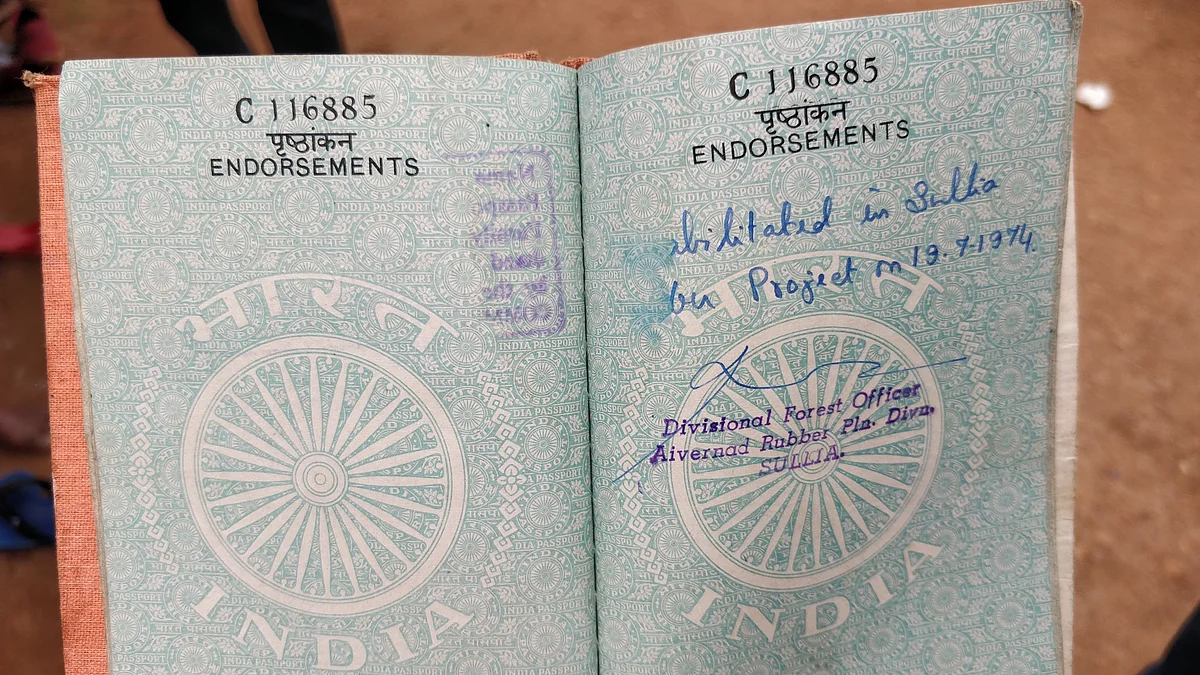 C 116885
पृष्ठांकन
ENDORSEMENTS
भारत
INDIA
C 116885
पृष्ठांकन
ENDORSEMENTS
abilitated in Sullia
ber Project on 19.7.1974.
Divisional Forest Officer
Aivernad Rubber Pln. Divn.
SULLIA.
भारत
INDIA